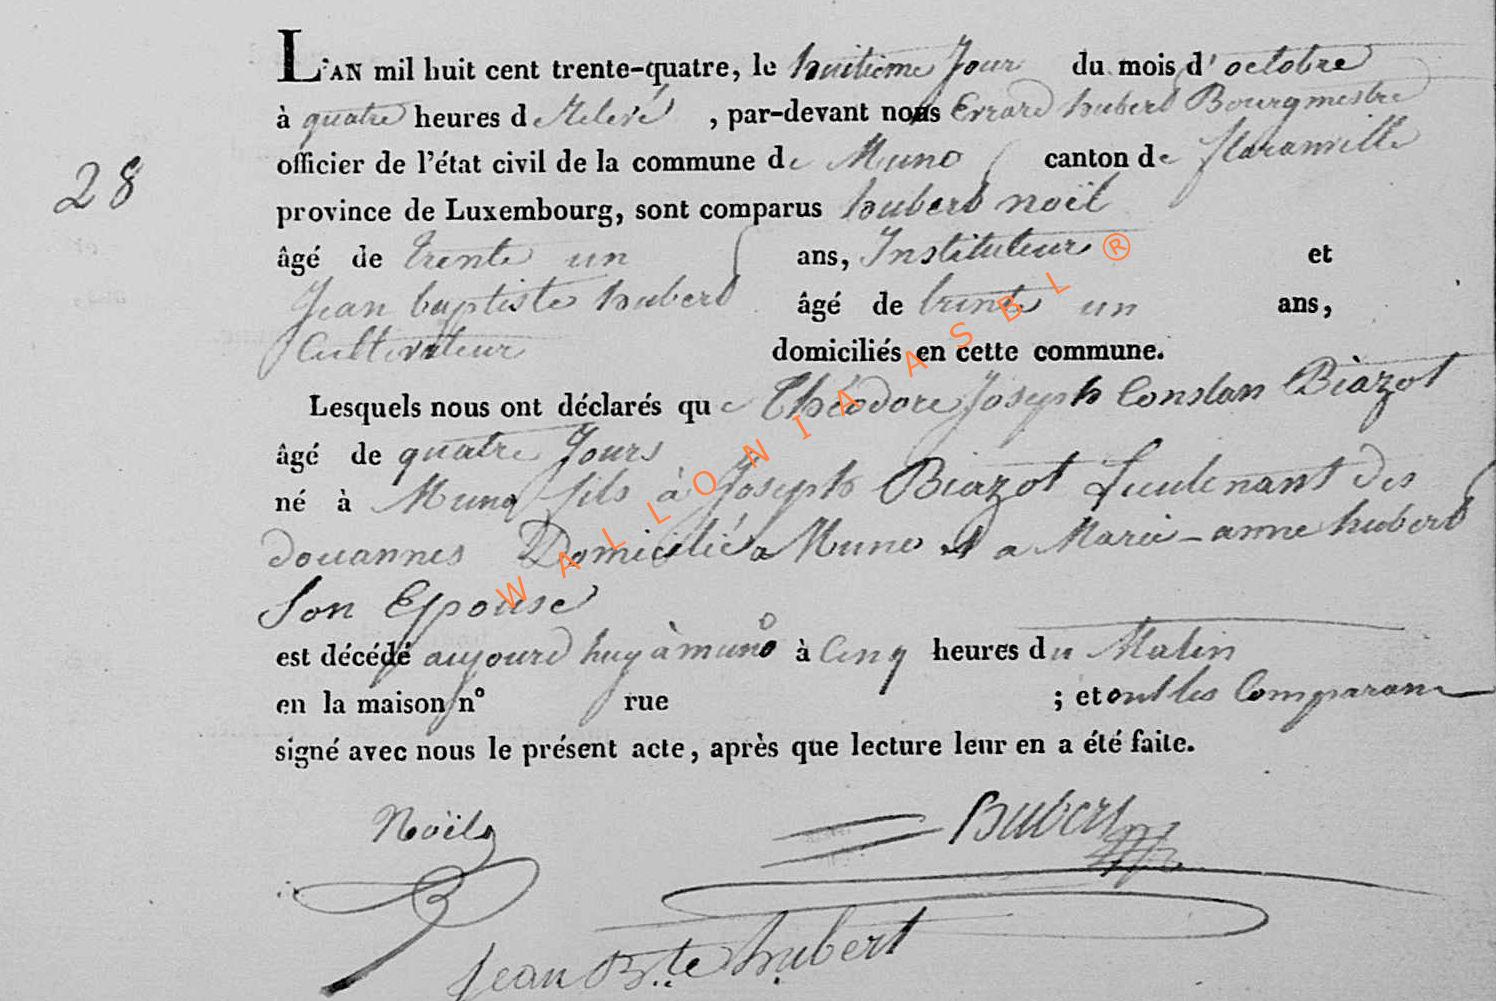 L'AN mil huit cent trente-quatre, le huitième Jour du mois d'octobre
à quatre heures de Relevé, par-devant nous Errard hubert Bourgmestre
officier de l'état civil de la commune de Muno canton de floranville
28
province de Luxembourg, sont comparus hubert noël
âgé de trente un ans, Instituteur et
Jean baptiste hubert âgé de trente un ans,
Cultivateur domiciliés en cette commune.
Lesquels nous ont déclarés que Théodore Joseph Constan Biazot
âgé de quatre Jours
né à Muno fils à Joseph Biazot Lieutenant des
douannes Domicilié a Muno et a Marie-anne hubert
Son Epouse
est décédé aujourd huy à muno à Cinq heures du Matin
en la maison n° rue ; et ont les Comparant
signé avec nous le présent acte, après que lecture leur en a été faite.
Noël
hubert
Jean Bte hubert
WALLONIA ASBL ®